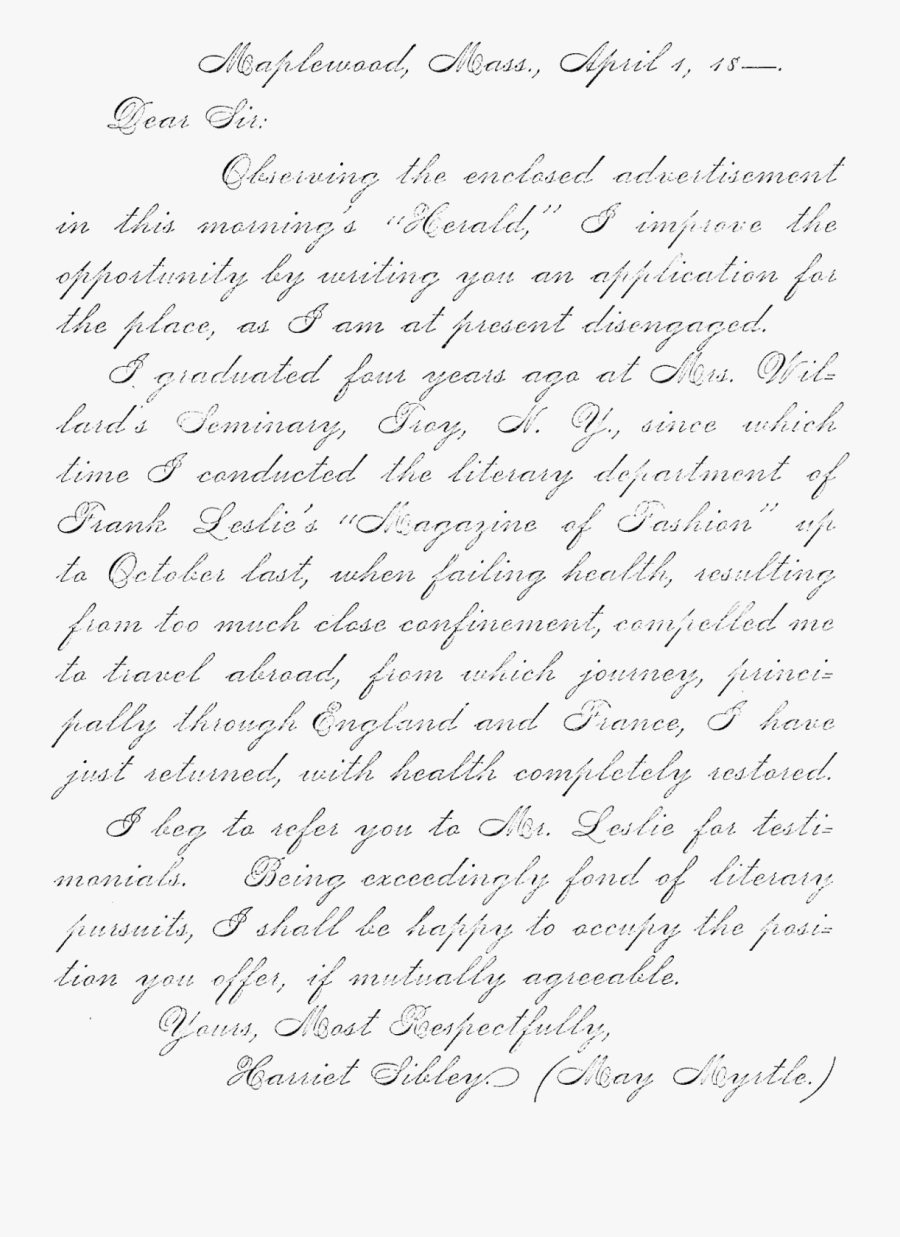 Maplewood, Mass., April 1, 18—.
Dear Sir:
Observing the enclosed advertisement
in this morning's "Herald," I improve the
opportunity by writing you an application for
the place, as I am at present disengaged.
I graduated four years ago at Mrs. Wil=
lard's Seminary, Troy, N. Y., since which
time I conducted the literary department of
Frank Leslie's "Magazine of Fashion" up
to October last, when failing health, resulting
from too much close confinement, compelled me
to travel abroad, from which journey, princi=
pally through England and France, I have
just returned, with health completely restored.
I beg to refer you to Mr. Leslie for testi=
monials. Being exceedingly fond of literary
pursuits, I shall be happy to occupy the posi=
tion you offer, if mutually agreeable.
Yours, Most Respectfully,
Harriet Sibley. (May Myrtle.)